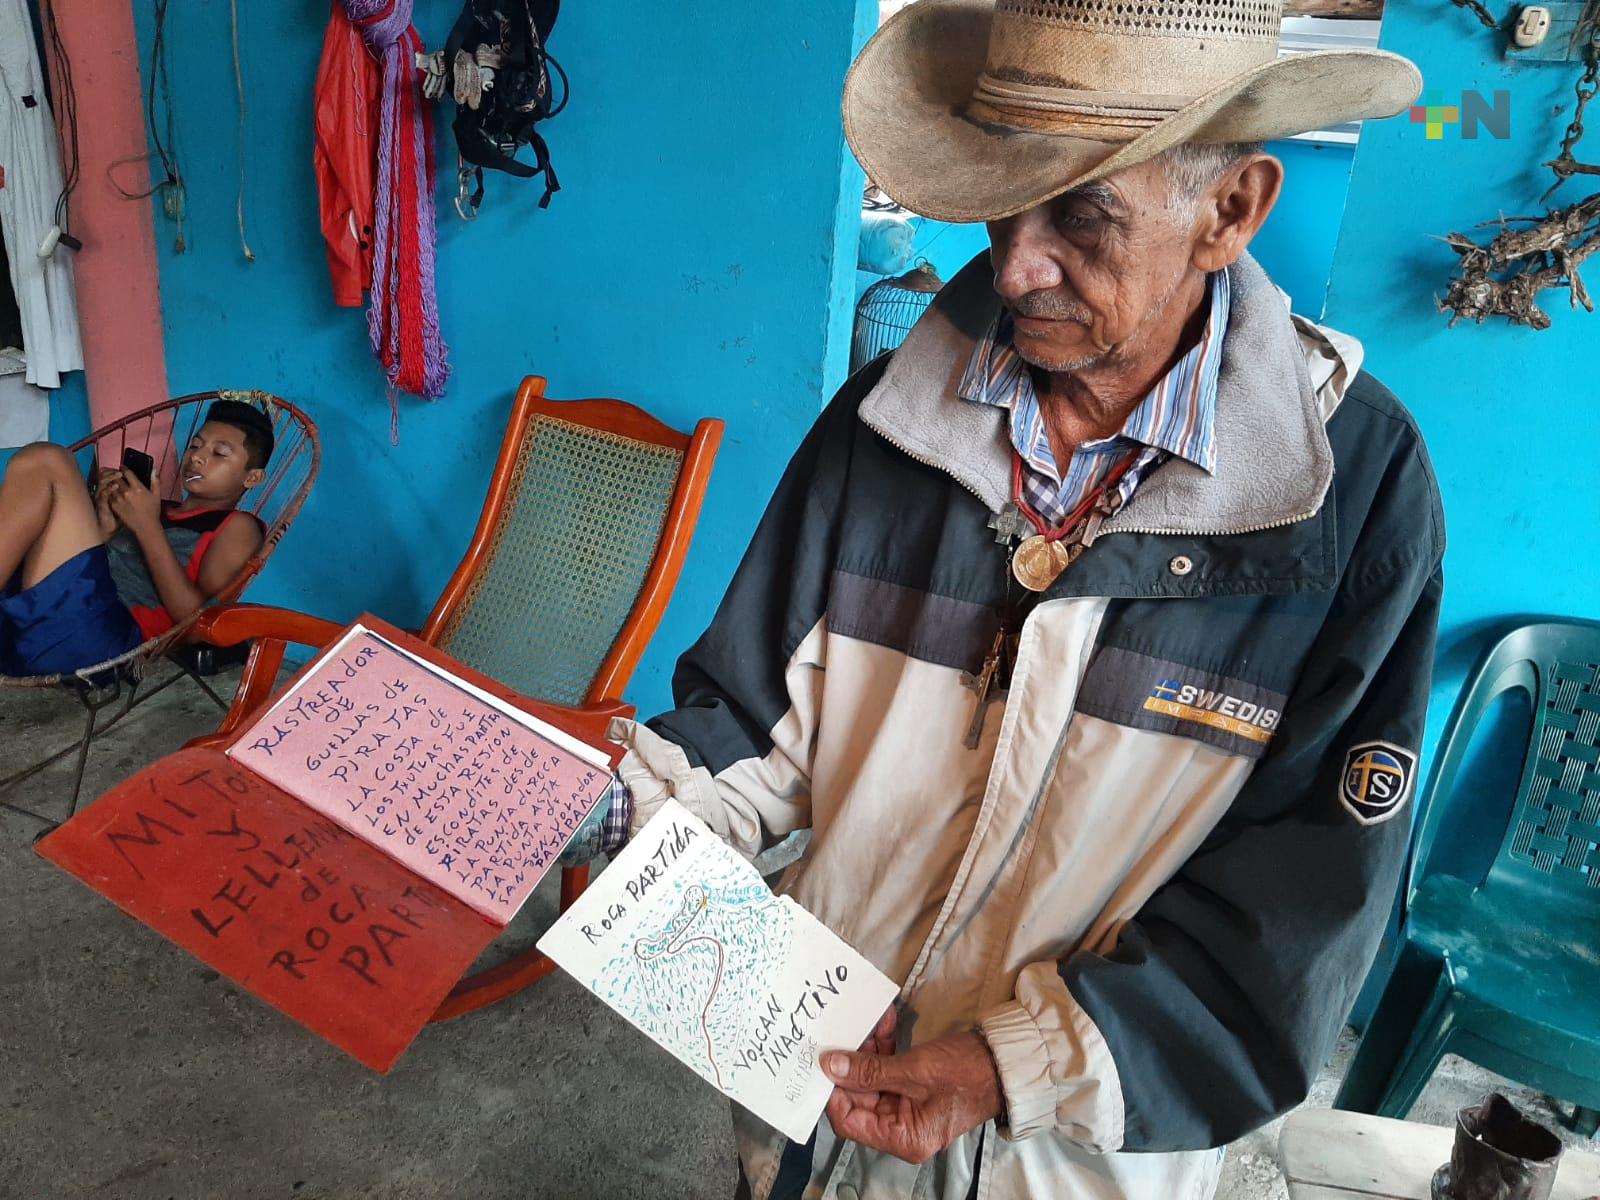 +N
SWEDISH
IMPACT
IS
MÍTOS
Y
LELLENDAS
de
ROCA
PART
RASTREADOR
DE
GUELLAS de
PIRATAS
LA COSTA de
LOS TUXTLAS FUE
EN MUCHAS PARTES
ESCONDITES DE
de ESTA REJION
PIRATAS desde
LA PUNTA dE ROCA
PARTIDA ASTA
LA PUNTA de
SAN JUAN VOLADOR
PAJAPAN
ROCA PARTIDA
VOLCAN
INACTIVO